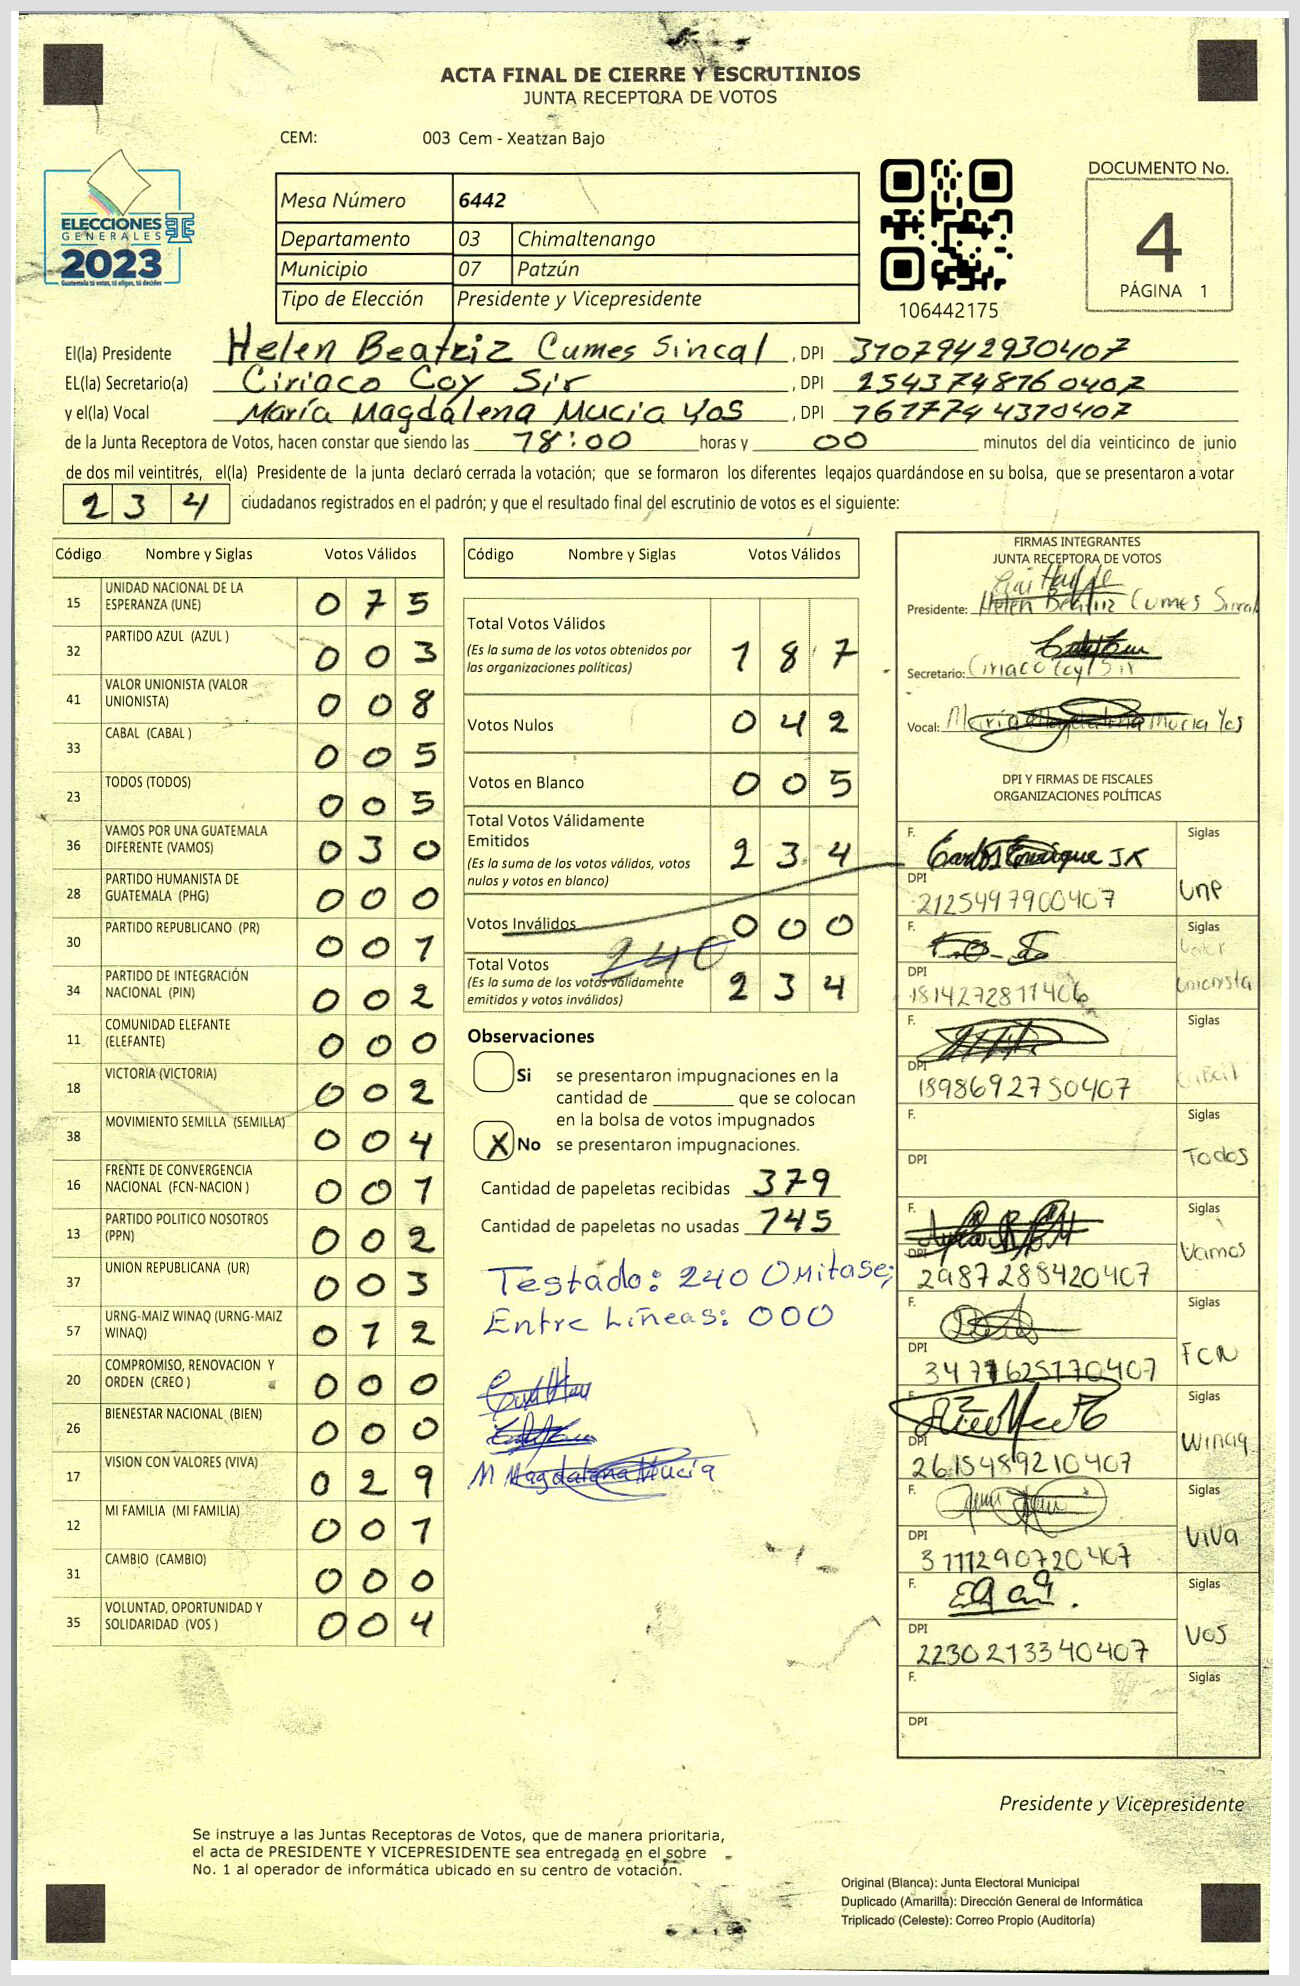 ACTA FINAL DE CIERRE Y ESCRUTINIOS
JUNTA RECEPTORA DE VOTOS
CEM: 003 Cem - Xeatzan Bajo
ELECCIONES
GENERALES
2023
Guatemala tú votas, tú eliges, tú decides
Mesa Número 6442
Departamento 03 Chimaltenango
Municipio 07 Patzún
Tipo de Elección Presidente y Vicepresidente
106442175
DOCUMENTO No.
4
PÁGINA 1
El(la) Presidente Helen Beatriz Cumes Sincal, DPI 3107942930407
EL(la) Secretario(a) Ciriaco Coy Sir, DPI 2543748760407
y el(la) Vocal María Magdalena Mucia Yos, DPI 1617744370407
de la Junta Receptora de Votos, hacen constar que siendo las 18:00 horas y 00 minutos del día veinticinco de junio
de dos mil veintitrés, el(la) Presidente de la junta declaró cerrada la votación; que se formaron los diferentes legajos quardándose en su bolsa, que se presentaron a votar
234 ciudadanos registrados en el padrón; y que el resultado final del escrutinio de votos es el siguiente:
Código Nombre y Siglas Votos Válidos
15 UNIDAD NACIONAL DE LA ESPERANZA (UNE) 075
32 PARTIDO AZUL (AZUL ) 003
41 VALOR UNIONISTA (VALOR UNIONISTA) 008
33 CABAL (CABAL ) 005
23 TODOS (TODOS) 005
36 VAMOS POR UNA GUATEMALA DIFERENTE (VAMOS) 030
28 PARTIDO HUMANISTA DE GUATEMALA (PHG) 000
30 PARTIDO REPUBLICANO (PR) 001
34 PARTIDO DE INTEGRACIÓN NACIONAL (PIN) 002
11 COMUNIDAD ELEFANTE (ELEFANTE) 000
18 VICTORIA (VICTORIA) 002
38 MOVIMIENTO SEMILLA (SEMILLA) 004
16 FRENTE DE CONVERGENCIA NACIONAL (FCN-NACION ) 001
13 PARTIDO POLITICO NOSOTROS (PPN) 002
37 UNION REPUBLICANA (UR) 003
57 URNG-MAIZ WINAQ (URNG-MAIZ WINAQ) 012
20 COMPROMISO, RENOVACION Y ORDEN (CREO ) 000
26 BIENESTAR NACIONAL (BIEN) 000
17 VISION CON VALORES (VIVA) 029
12 MI FAMILIA (MI FAMILIA) 001
31 CAMBIO (CAMBIO) 000
35 VOLUNTAD, OPORTUNIDAD Y SOLIDARIDAD (VOS ) 004
Código Nombre y Siglas Votos Válidos
Total Votos Válidos 187
(Es la suma de los votos obtenidos por
las organizaciones políticas)
Votos Nulos 042
Votos en Blanco 005
Total Votos Válidamente
Emitidos 234
(Es la suma de los votos válidos, votos
nulos y votos en blanco)
Votos Inválidos 000
240
Total Votos 234
(Es la suma de los votos válidamente
emitidos y votos inválidos)
Observaciones
Si se presentaron impugnaciones en la
cantidad de ________ que se colocan
en la bolsa de votos impugnados
X No se presentaron impugnaciones.
Cantidad de papeletas recibidas 379
Cantidad de papeletas no usadas 145
Testado: 240 Omitase;
Entre Líneas: 000
M Magdalena Mucia
FIRMAS INTEGRANTES
JUNTA RECEPTORA DE VOTOS
Presidente: Helen Beatriz Cumes Sincal
Secretario: Ciriaco Coy Sir
Vocal: María Magdalena Mucia Yos
DPI Y FIRMAS DE FISCALES
ORGANIZACIONES POLÍTICAS
F. Carlos Enrique JX Siglas
DPI 2125497900407 UNP
F. Siglas
DPI 1814272811406 Valor Unionista
F. Siglas
DPI 1898692750407 Cabal
F. Siglas
DPI Todos
F. Siglas
DPI 2987288420407 Vamos
F. Siglas
DPI 3471625170407 FCN
F. Siglas
DPI 2615489210407 Winaq
F. Siglas
DPI 3111290720407 VIVA
F. Siglas
DPI 2230213340407 VOS
F. Siglas
DPI
Presidente y Vicepresidente
Se instruye a las Juntas Receptoras de Votos, que de manera prioritaria,
el acta de PRESIDENTE Y VICEPRESIDENTE sea entregada en el sobre
No. 1 al operador de informática ubicado en su centro de votación.
Original (Blanca): Junta Electoral Municipal
Duplicado (Amarilla): Dirección General de Informática
Triplicado (Celeste): Correo Propio (Auditoría)